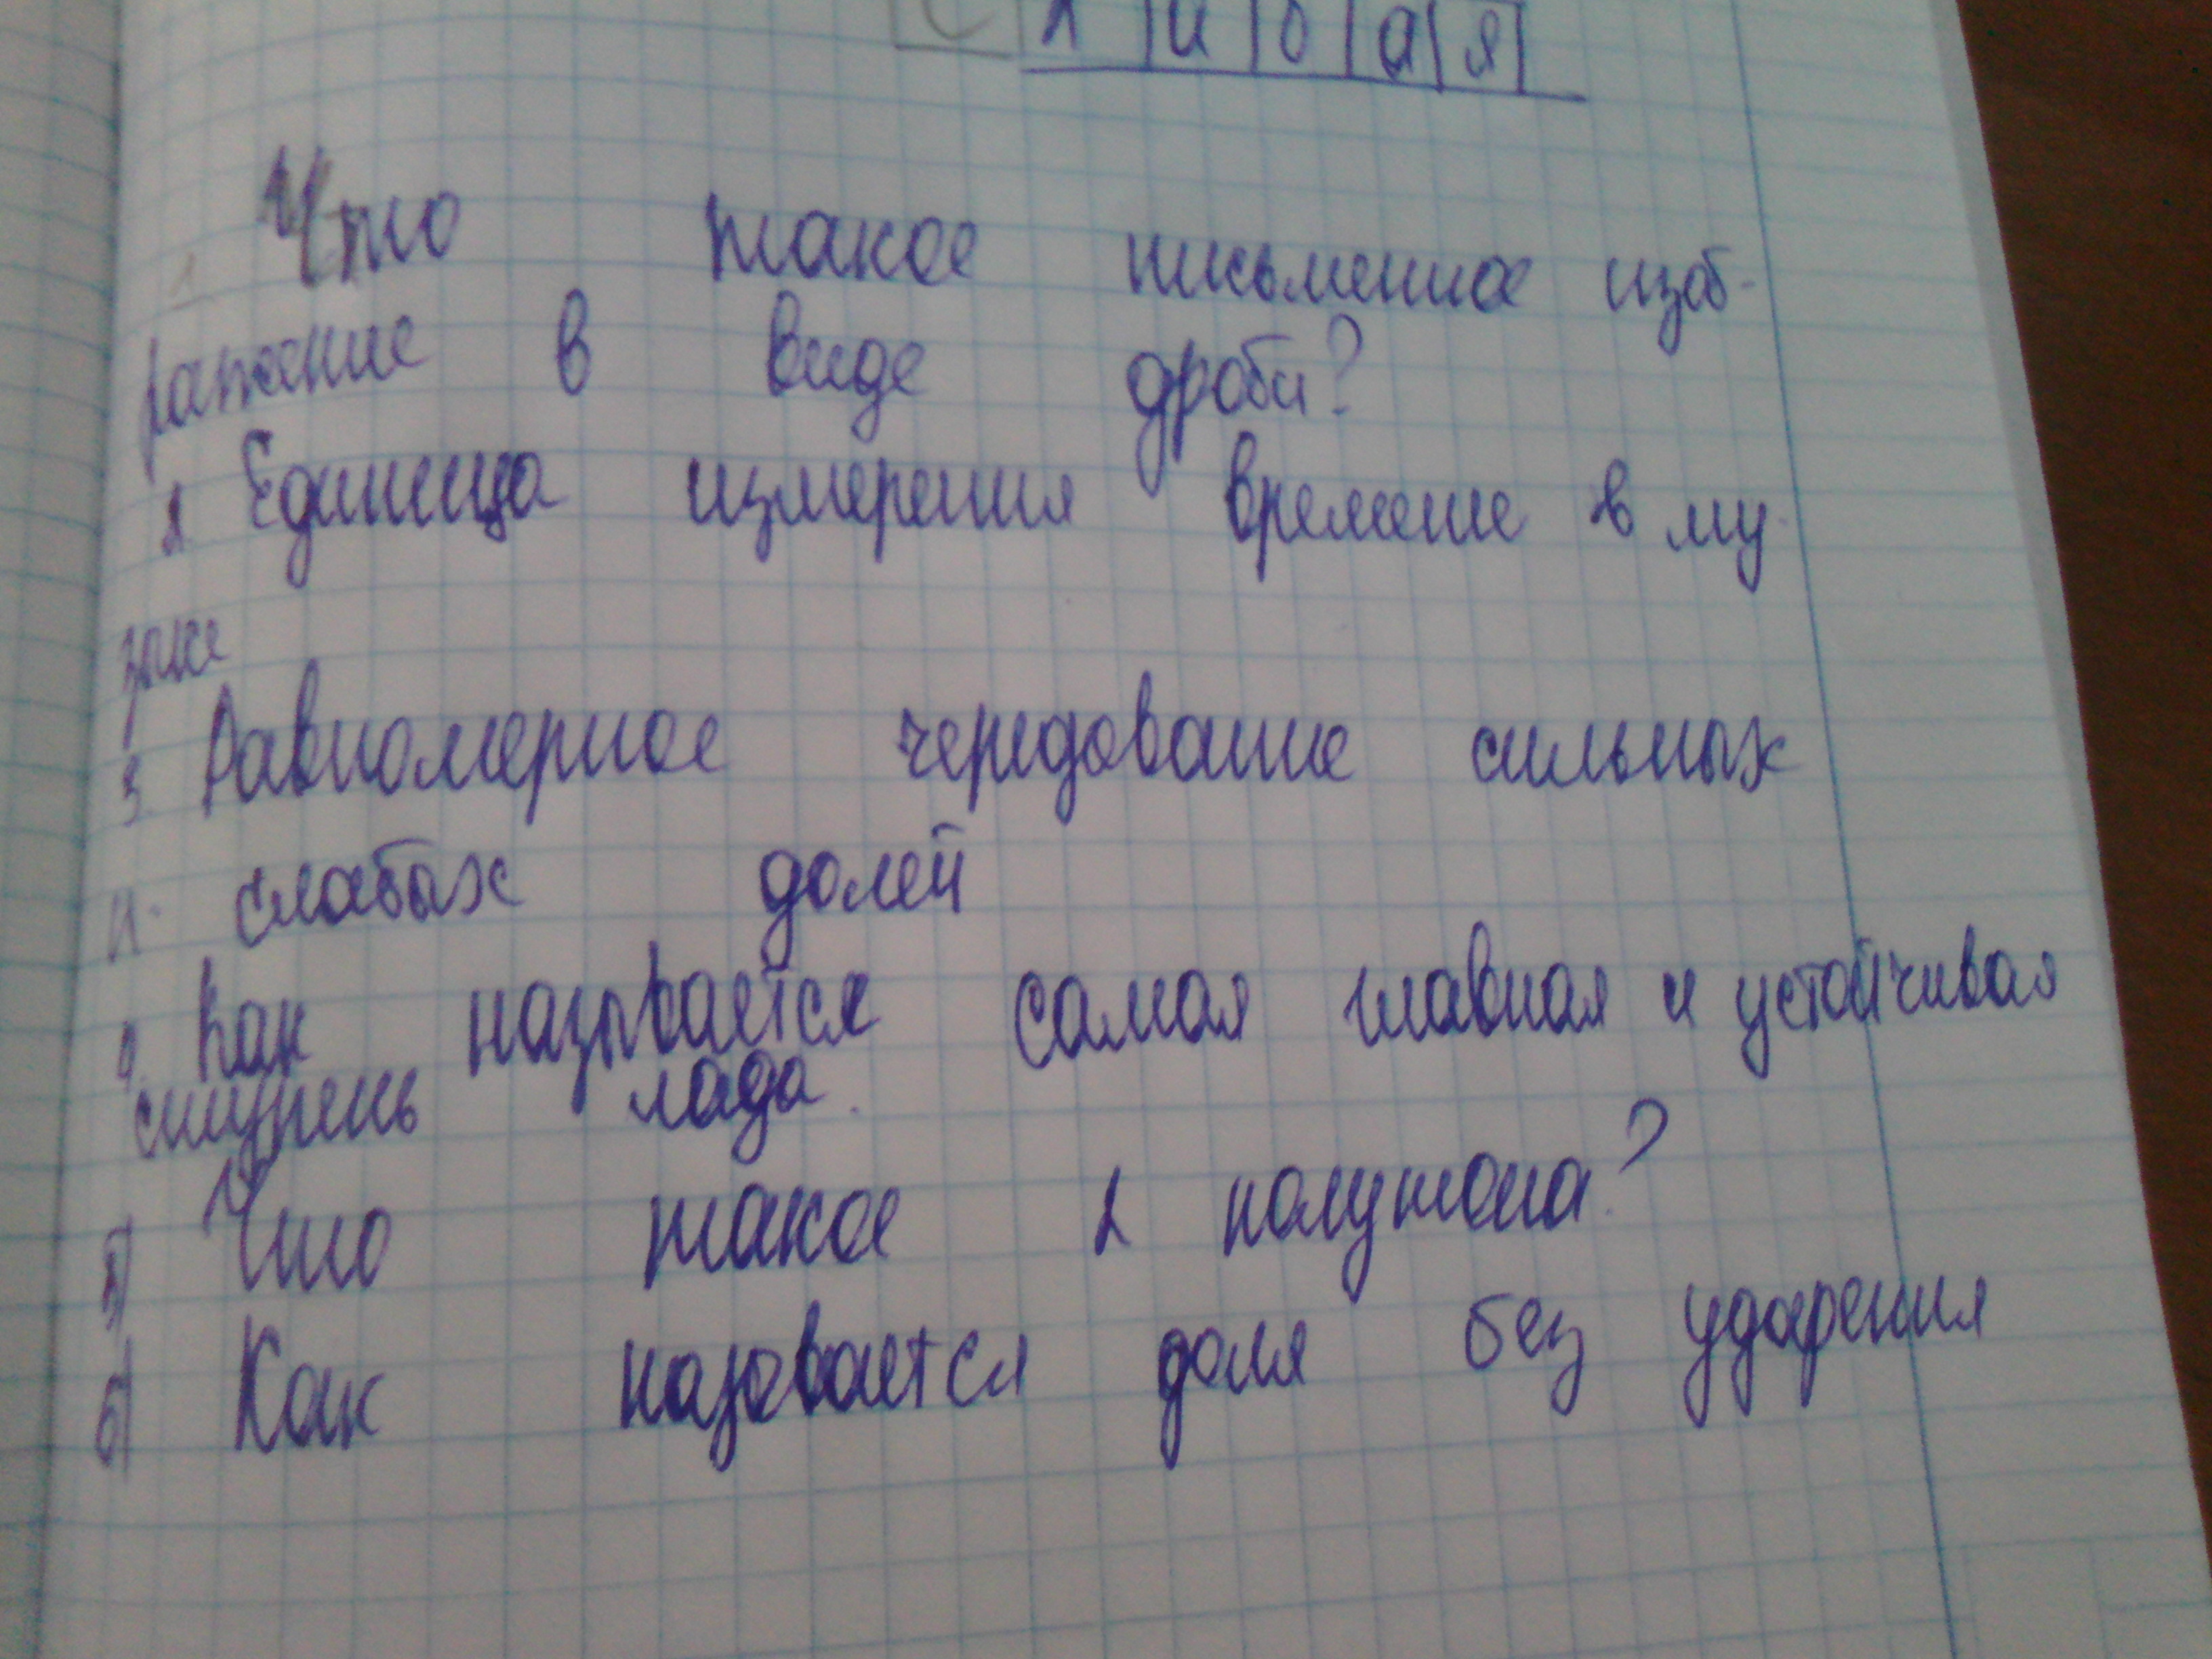 л и б а я
1 Что такое письменное изоб-
ражение в виде дроби?
2 Единица измерения времение в му-
зыке
3. Равномерное чередование сильных
и слабых долей
Как называется самая главная и устойчивая
ступень лада.
5) Что такое 2 полутона?
6) Как называется доля без ударения